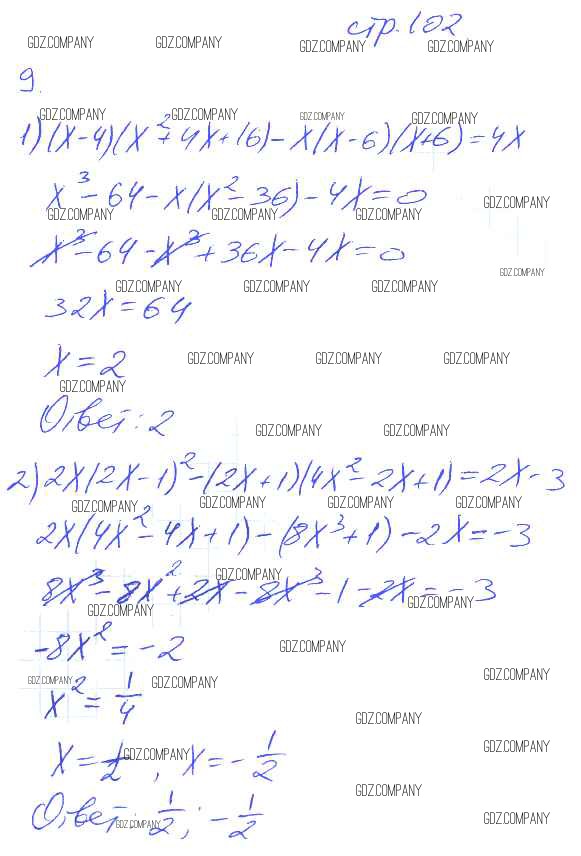 стр. 102
GDZ.COMPANY GDZ.COMPANY GDZ.COMPANY GDZ.COMPANY
9.
GDZ.COMPANY GDZ.COMPANY GDZ.COMPANY GDZ.COMPANY
1) (x-4)(x²+4x+16)-x(x-6)(x+6)=4x
x³-64-x(x²-36)-4x=0
GDZ.COMPANY
GDZ.COMPANY GDZ.COMPANY GDZ.COMPANY
x³-64-x³+36x-4x=0
GDZ.COMPANY
GDZ.COMPANY GDZ.COMPANY GDZ.COMPANY
32x=64
x=2
GDZ.COMPANY GDZ.COMPANY GDZ.COMPANY
GDZ.COMPANY
Ответ: 2
GDZ.COMPANY GDZ.COMPANY
2) 2x(2x-1)²-(2x+1)(4x²-2x+1)=2x-3
GDZ.COMPANY GDZ.COMPANY GDZ.COMPANY GDZ.COMPANY
2x(4x²-4x+1)-(8x³+1)-2x=-3
GDZ.COMPANY
8x³-8x²+2x-8x³-1-2x=-3
GDZ.COMPANY GDZ.COMPANY
-8x²=-2
GDZ.COMPANY
GDZ.COMPANY GDZ.COMPANY GDZ.COMPANY
x²=1/4
GDZ.COMPANY
x=1/2, x=-1/2
GDZ.COMPANY GDZ.COMPANY
GDZ.COMPANY
Ответ: 1/2; -1/2
GDZ.COMPANY GDZ.COMPANY